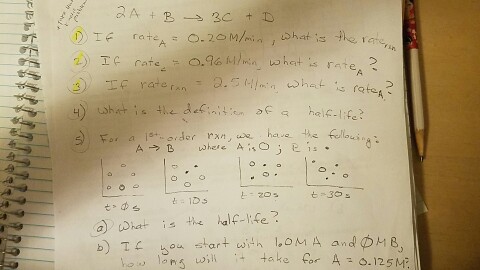 2A + B → 3C + D
1) If rate A = 0.20 M/min, what is the rate rxn
2) If rate = 0.96 M/min, what is rate A?
3) If rate rxn = 2.5 M/min, what is rate A?
4) What is the definition of a half-life?
5) For a 1st-order rxn, we have the following:
A → B where A is O; B is •
t = Ø s t = 10s t = 20s t = 30s
a) What is the half-life?
b) If you start with 1.0 M A and Ø M B,
how long will it take for A = 0.125M?